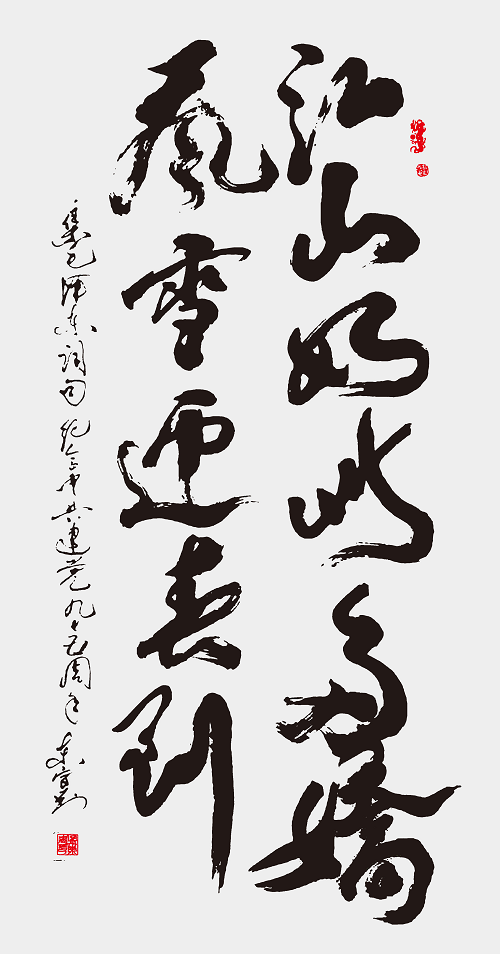 江山如此多嬌
風雪迎春到
集毛泽东詞句 纪念中共建党九十五周年